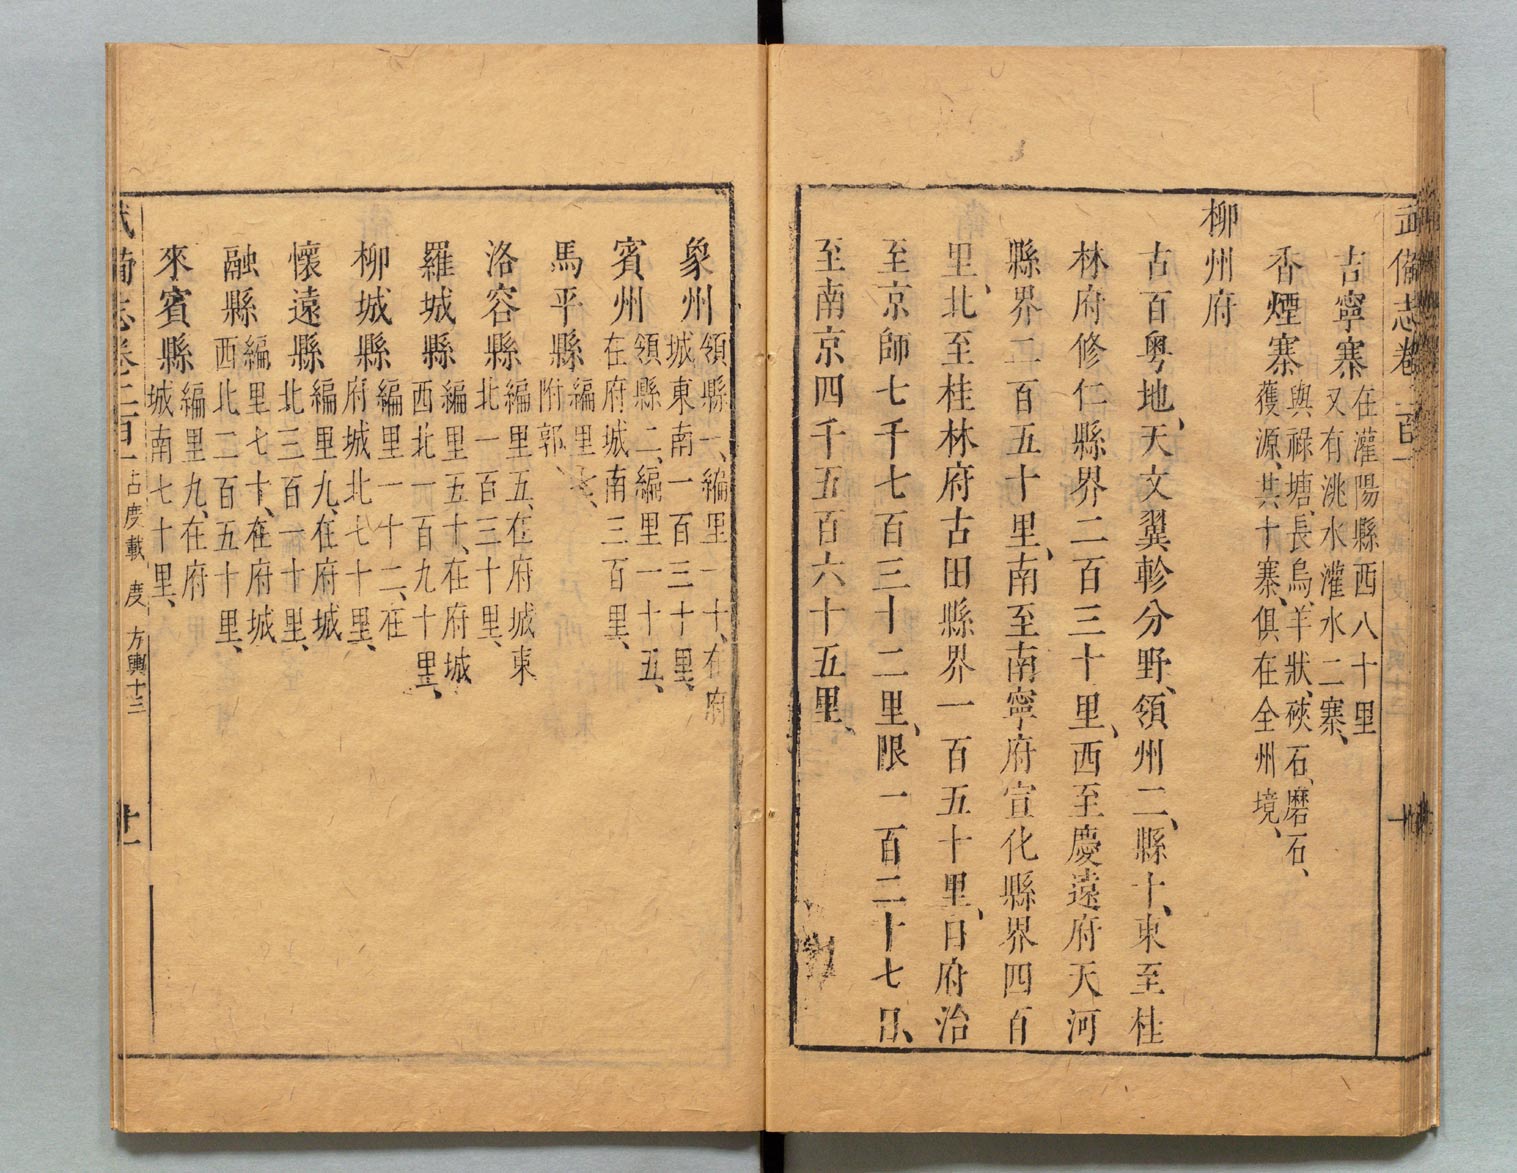 武備志卷二百一
吉寧寨 在灌陽縣西八十里
又有洮水灌水二寨、
香煙寨 與祿塘、長烏、羊狀、硤石、磨石、
獲源、其十寨、俱在全州境、
柳州府
古百粵地、天文翼軫分野、領州二、縣十、東至桂
林府修仁縣界二百三十里、西至慶遠府天河
縣界二百五十里、南至南寧府宣化縣界四百
里、北至桂林府古田縣界一百五十里、自府治
至京師七千七百三十二里、限一百二十七日、
至南京四千五百六十五里、
象州 領縣一、編里一十、在府
城東南一百三十里、
賓州 領縣二、編里一十五、
在府城南三百里、
馬平縣 編里七、
附郭、
洛容縣 編里五、在府城東
北一百三十里、
羅城縣 編里五十、在府城
西北一百九十里、
柳城縣 編里一十二、在
府城北七十里、
懷遠縣 編里九、在府城
北三百一十里、
融縣 編里七十、在府城
西北二百五十里、
來賓縣 編里九、在府
城南七十里、
武備志卷二百一 占度載 度 方輿十三 十一